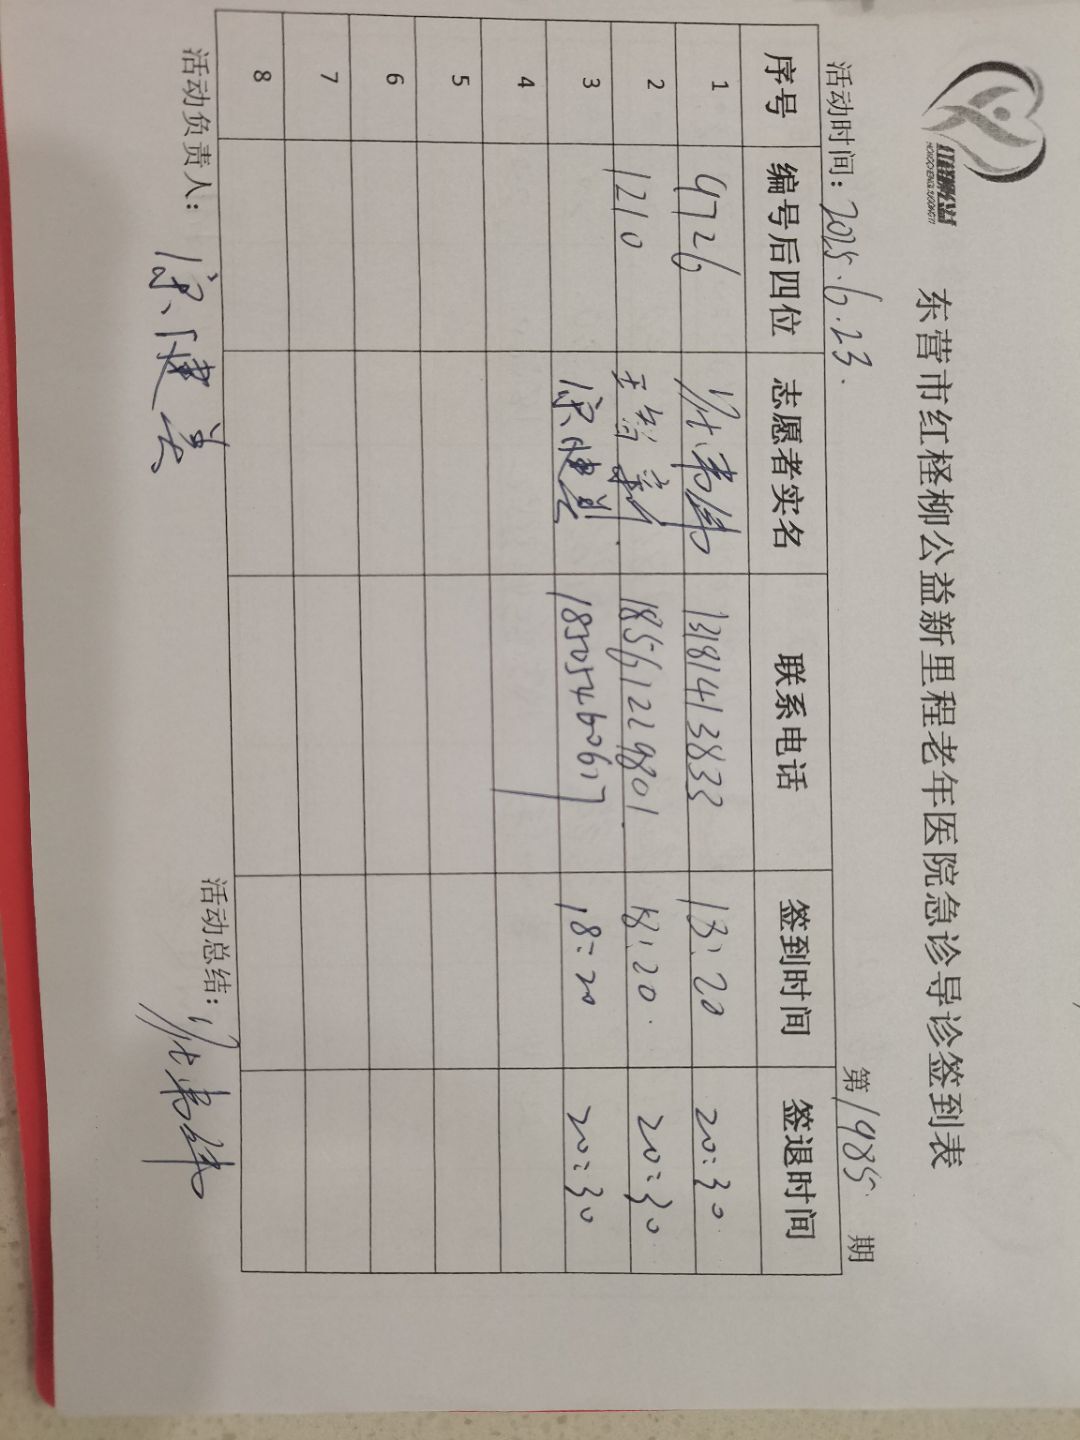 红柽柳公益
东营市红柽柳公益新里程老年医院急诊导诊签到表
活动时间：2025.6.23. 第1985期
序号 编号后四位 志愿者实名 联系电话 签到时间 签退时间
1 9726 13181413833 18:20 20:30
2 1210 王智 18561229801 18:20 20:30
3 宋健美 18505460617 18:20 20:30
4
5
6
7
8
活动负责人：宋健美 活动总结：